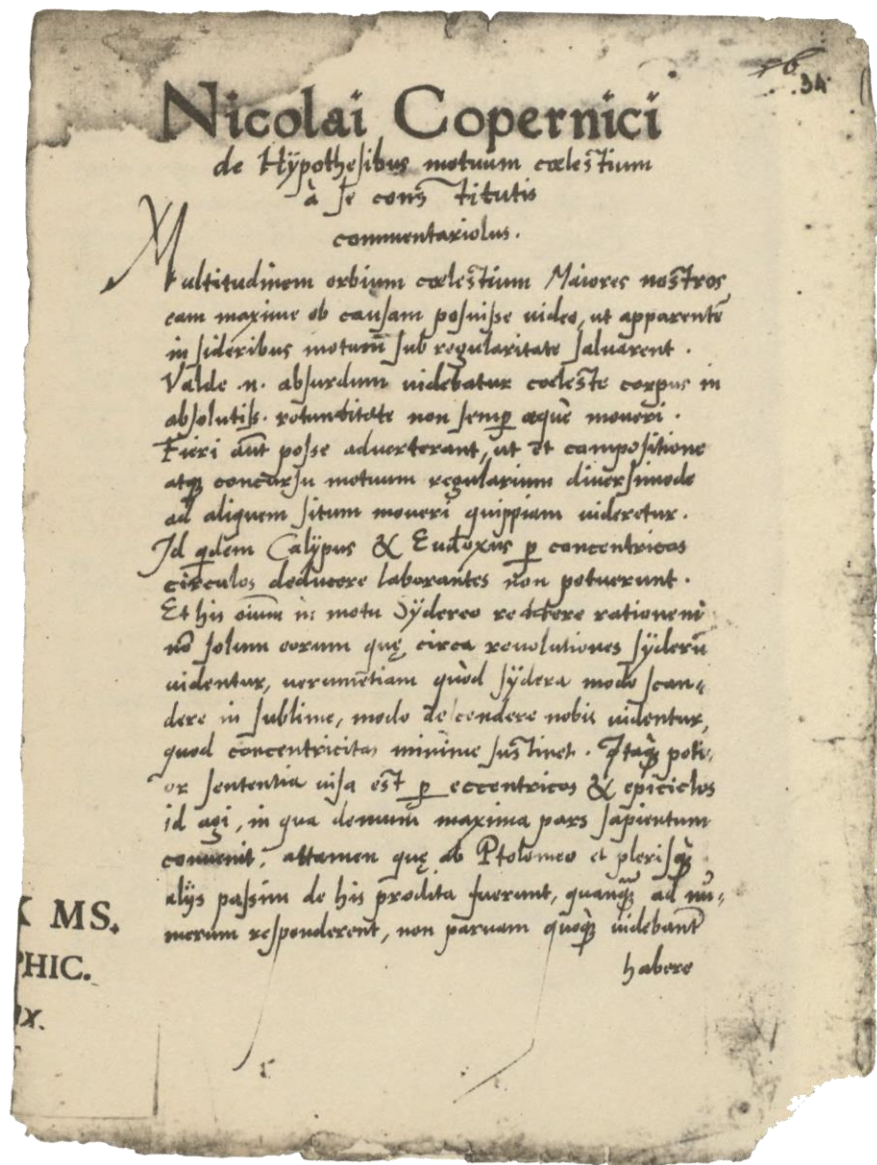 34
Nicolai Copernici
de Hÿpothesibus motuum cœlestium
à se constitutis
commentariolus.
Multitudinem orbium cœlestium Maiores nostros
eam maxime ob causam posuisse uideo, ut apparentē
in sideribus motum sub regularitate saluarent.
Valde .n. absurdum uidebatur cœleste corpus in
absolutiss. rotunditate non semp æquè moueri.
Fieri aūt posse aduerterant, ut et compositione
atq concursu motuum regularium diuersimode
ad aliquem situm moueri quippiam uideretur.
Id qdem Calÿpus & Eudoxus p concentricos
circulos deducere laborantes non potuerunt.
Et his oīum in motu Sydereo reddere rationem
nō solum eorum quę circa reuolutiones sÿderū
uidentur, uerumetiam quòd sÿdera modo scan-
dere in sublime, modo descendere nobis uidentur,
quod concentricitas minime sustinet. Itaq poti-
or sententia uisa est p eccentricos & epiciclos
id agi, in qua demum maxima pars sapientum
conuenit, attamen quę ab Ptolomeo et plerisq
alijs passim de his prodita fuerunt, quanq ad nu-
merum responderent, non paruam quoq uidebant
habere
MS.
PHIC.
IX.